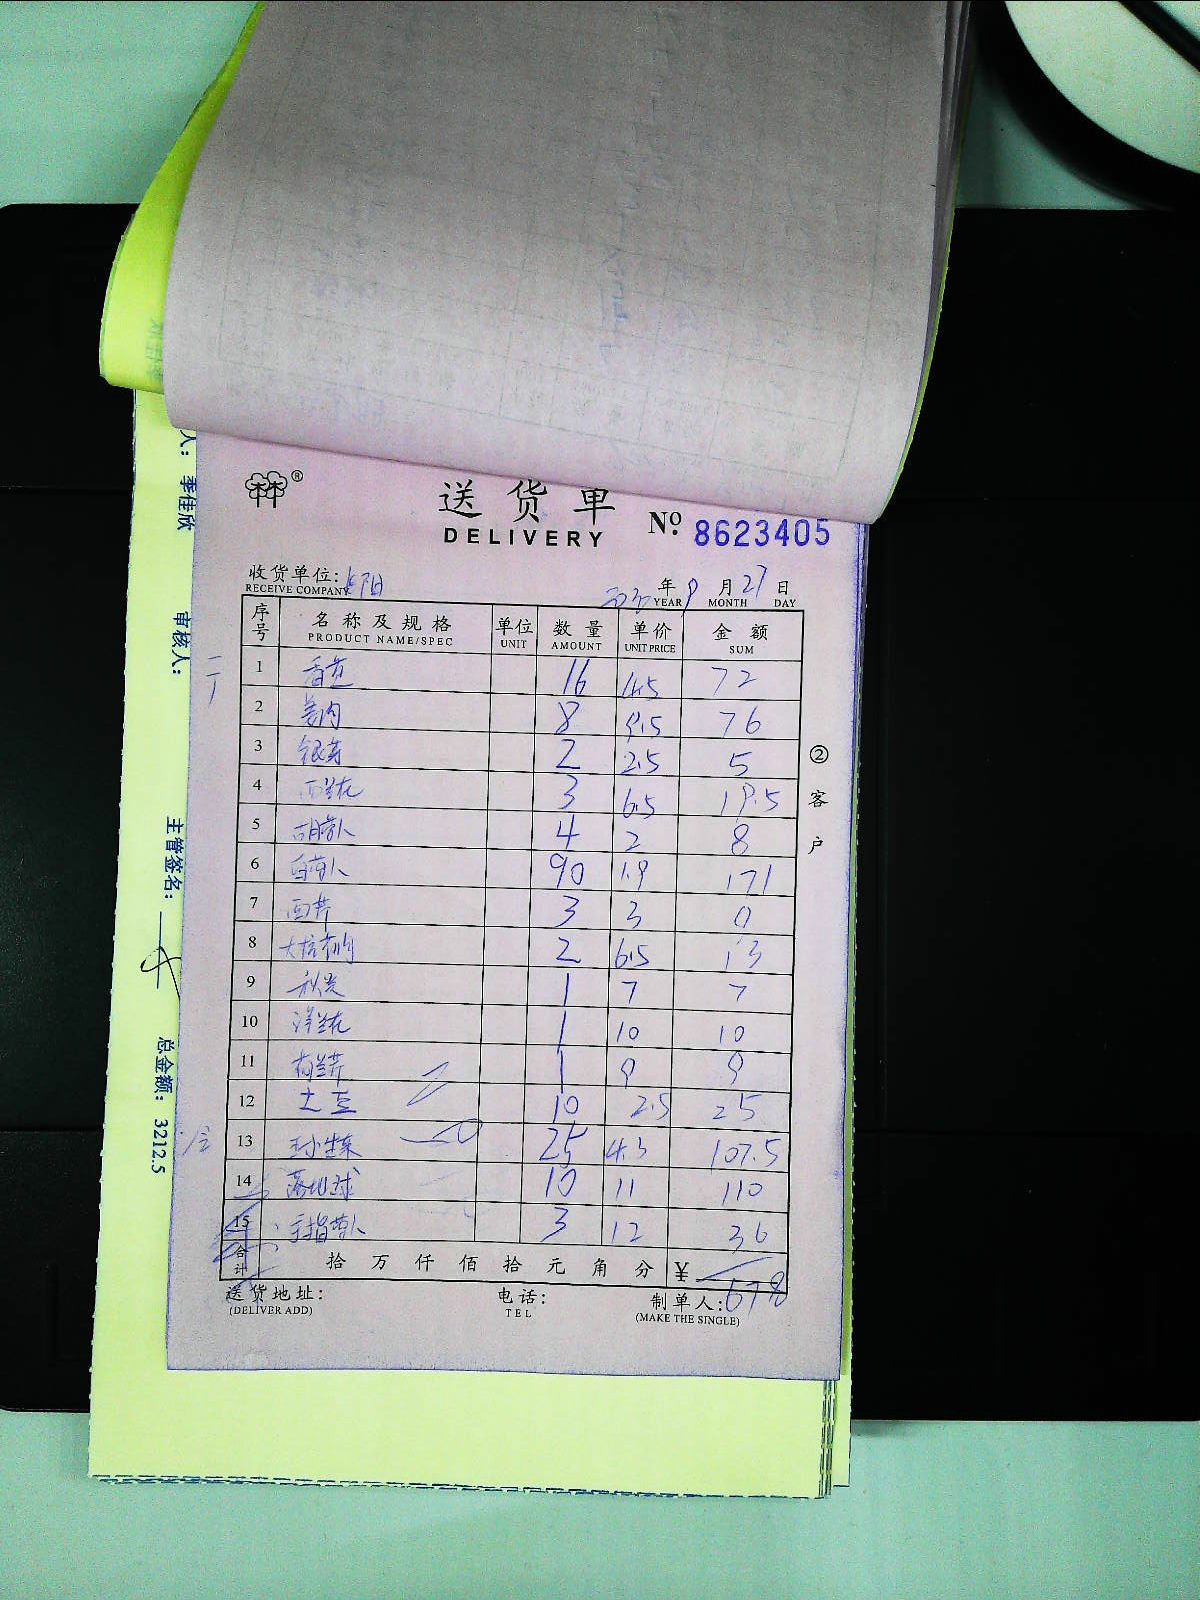 送货单
DELIVERY
№ 8623405
收货单位:
RECEIVE COMPANY
年 9 月 27 日
YEAR MONTH DAY
序号 名称及规格 单位 数量 单价 金额
PRODUCT NAME/SPEC UNIT AMOUNT UNIT PRICE SUM
1 香芹 16 4.5 72
2 姜肉 8 9.5 76
3 银芽 2 2.5 5
4 西兰花 3 6.5 19.5
5 胡萝卜 4 2 8
6 白萝卜 90 1.9 171
7 西芹 3 3 9
8 2 6.5 13
9 秋葵 1 7 7
10 1 10 10
11 1 9 9
12 土豆 10 2.5 25
13 25 4.3 107.5
14 10 11 110
15 手指萝卜 3 12 36
合计 拾 万 仟 佰 拾 元 角 分 ¥ 678
送货地址:
(DELIVER ADD)
电话:
TEL
制单人:
(MAKE THE SINGLE)
②客户
人: 季佳欣
审核人:
主管签名:
总金额: 3212.5